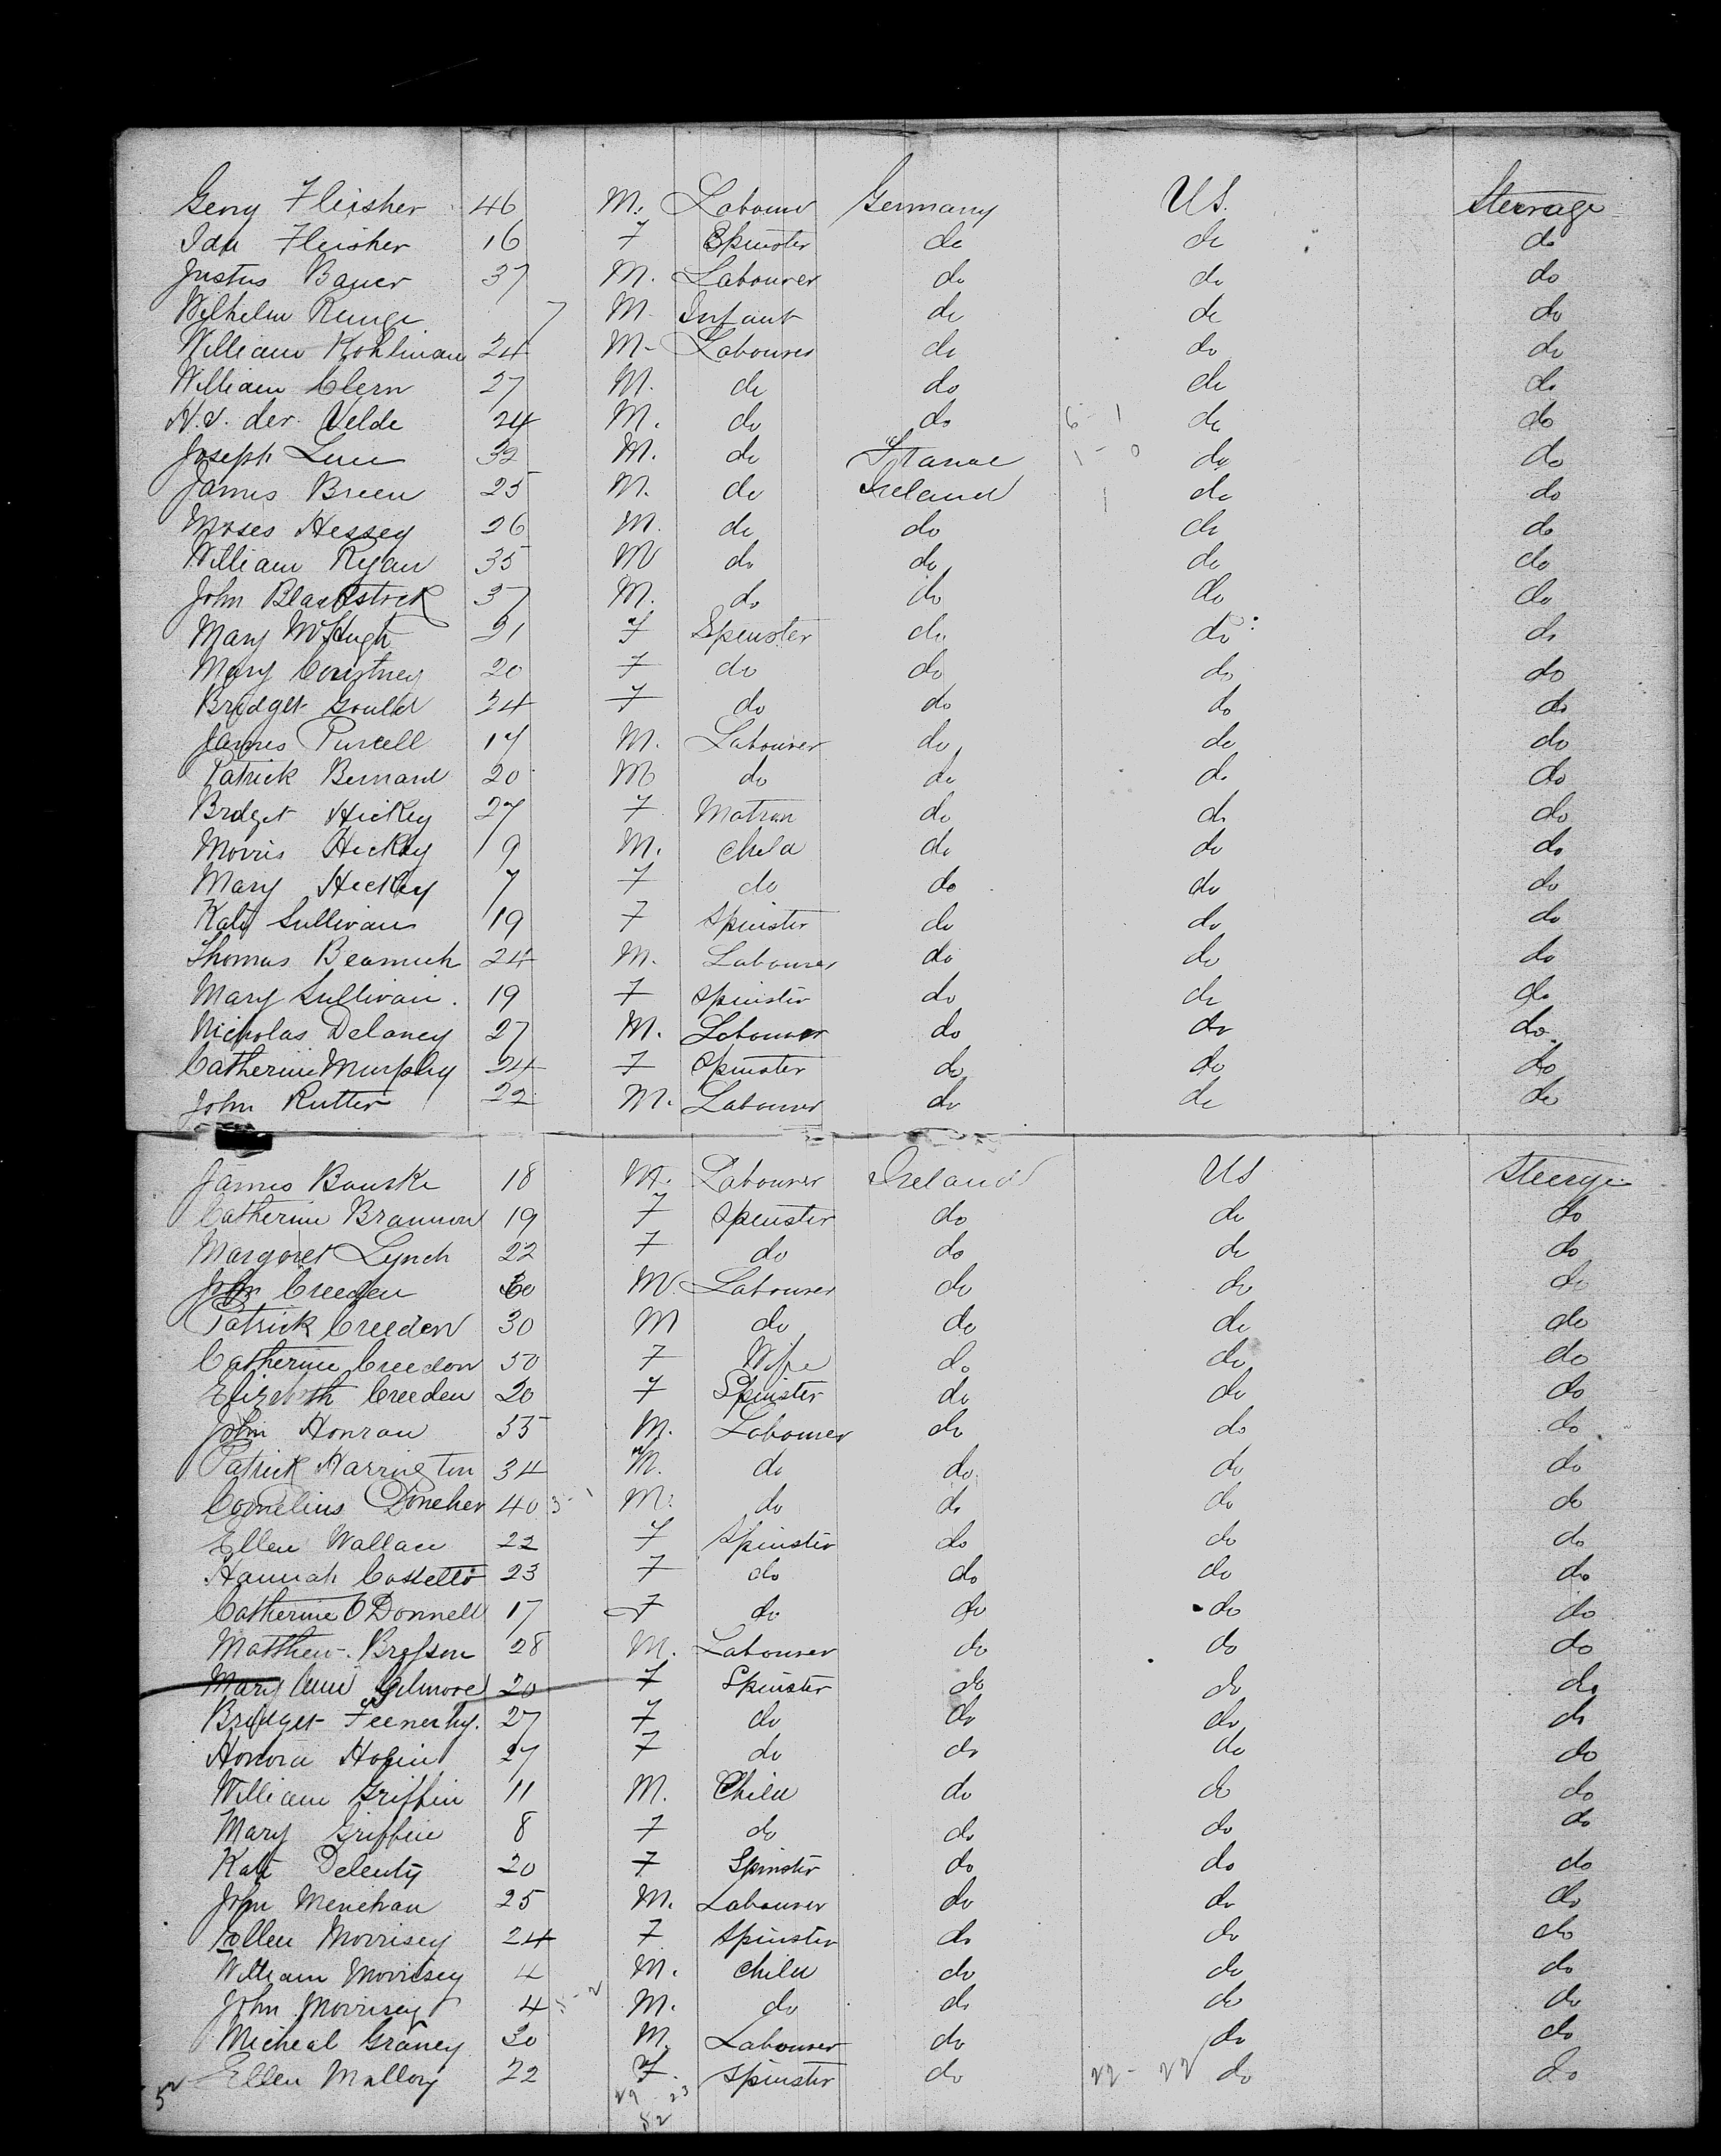 Gerry Fleisher 46 M. Labour Germany US. Steerage
Ida Fleisher 16 F Spinster do do do
Justus Bauer 37 M. Labourer do do do
Wilhelm Runge 7 M Infant do do do
William Kohlman 24 M- Labourer do do do
William Clern 27 M. do do do do
H.V. der Velde 24 M. do do 6-1 do do
Joseph 32 M. do 1-0 do do
James Breen 25 M. do Ireland 1 do do
Moses Hessey 26 M. do do do do
William Ryan 35 M do do do do
John 37 M. do do do do
Mary McHugh 31 F Spinster do do do
Mary Courtney 20 F do do do do
Bridget Gould 24 F do do do do
James Purcell 17 M. Labourer do do do
Patrick Bernard 20 M do do do do
Bridget Hickey 27 F Matron do do do
Morris Hickey 9 M. Child do do do
Mary Hickey 7 F do do do do
Kate Sullivan 19 F Spinster do do do
Thomas Beamish 24 M. Labourer do do do
Mary Sullivan. 19 F Spinster do do do
Nicholas Delaney 27 M. Labourer do do do
Catherine Murphy 24 F Spinster do do do
John Rutter 22 M. Labourer do do do
James Bourke 18 M. Labourer Ireland US Steerge
Catherine Brannon 19 F Spinster do do do
Margaret Lynch 22 F do do do do
John Creeden 60 M. Labourer do do do
Patrick Creeden 30 M do do do do
Catherine Creedon 50 F Wife do do do
Elizabeth Creeden 20 F Spinster do do do
John Honran 35 M. Labourer do do do
Patrick Harrington 34 M. do do do do
Cornelius Doneher 40 3-1 M. do do do do
Ellen Wallace 22 F Spinster do do do
Hannah Costello 23 F do do do do
Catherine O'Donnell 17 F do do do do
Matthew Brosson 28 M. Labourer do do do
Mary Ann Gilmore 20 F Spinster do do do
Bridget Feenerhy. 27 F do do do do
Honora Hogin 27 F do do do do
William Griffin 11 M. Child do do do
Mary Griffin 8 F do do do do
Kate Delenty 20 F Spinster do do do
John Menehan 25 M. Labourer do do do
Ellen Morrisey 24 F Spinster do do do
William Morrisey 4 M. Child do do do
John Morrisey 4 5-2 M. do do do do
Micheal Graney 30 M. Labourer do do do
Ellen Mallory 22 F. Spinster do 22-22 do do
52 29 23
52